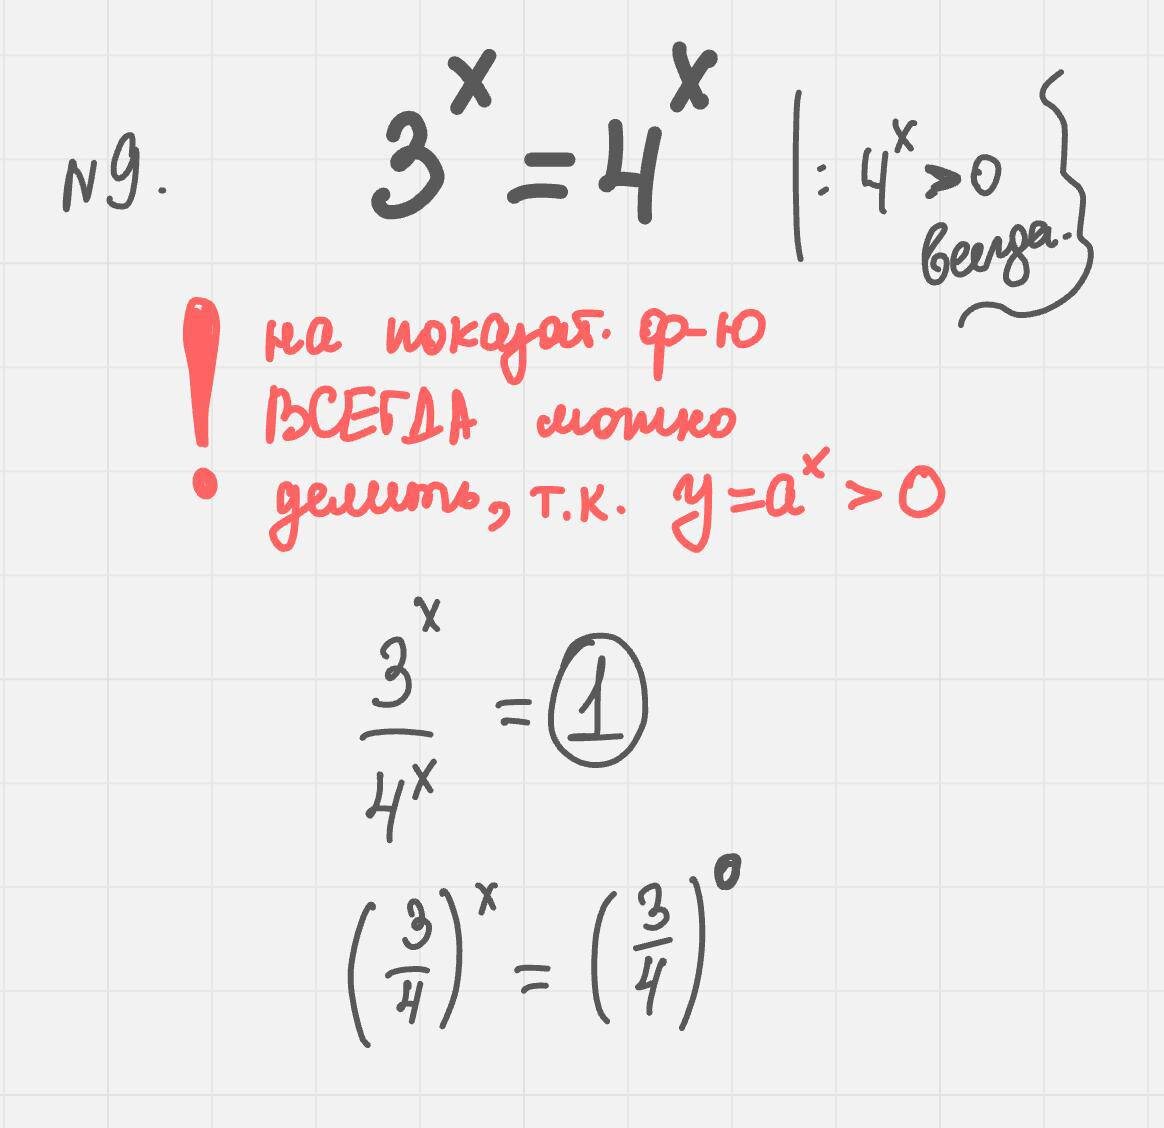 N9. 3^x = 4^x | : 4^x > 0
всегда.
! на показат. ф-ю
ВСЕГДА можно
делить, т.к. y = a^x > 0
3^x / 4^x = 1
(3/4)^x = (3/4)^0